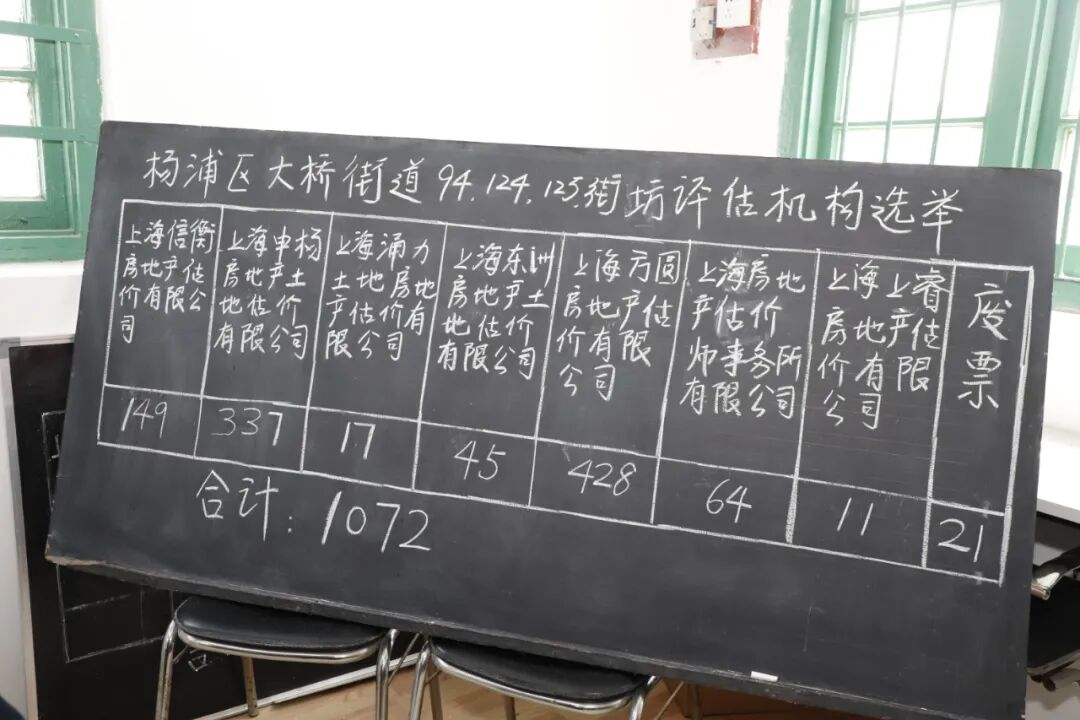 杨浦区大桥街道94.124.125.街坊评估机构选举
上海信衡
房地产估
价有限公
司
上海申杨
房地产土
地估价
有限公司
上海涌力
土地房地
产估价有
限公司
上海东洲
房地产土
地估价
有限公司
上海方圆
房地产估
价有限
公司
上海房地
产估价
师事务所
有限公司
上海上睿
房地产估
价有限
公司
废票
149 337 17 45 428 64 11 21
合计：1072